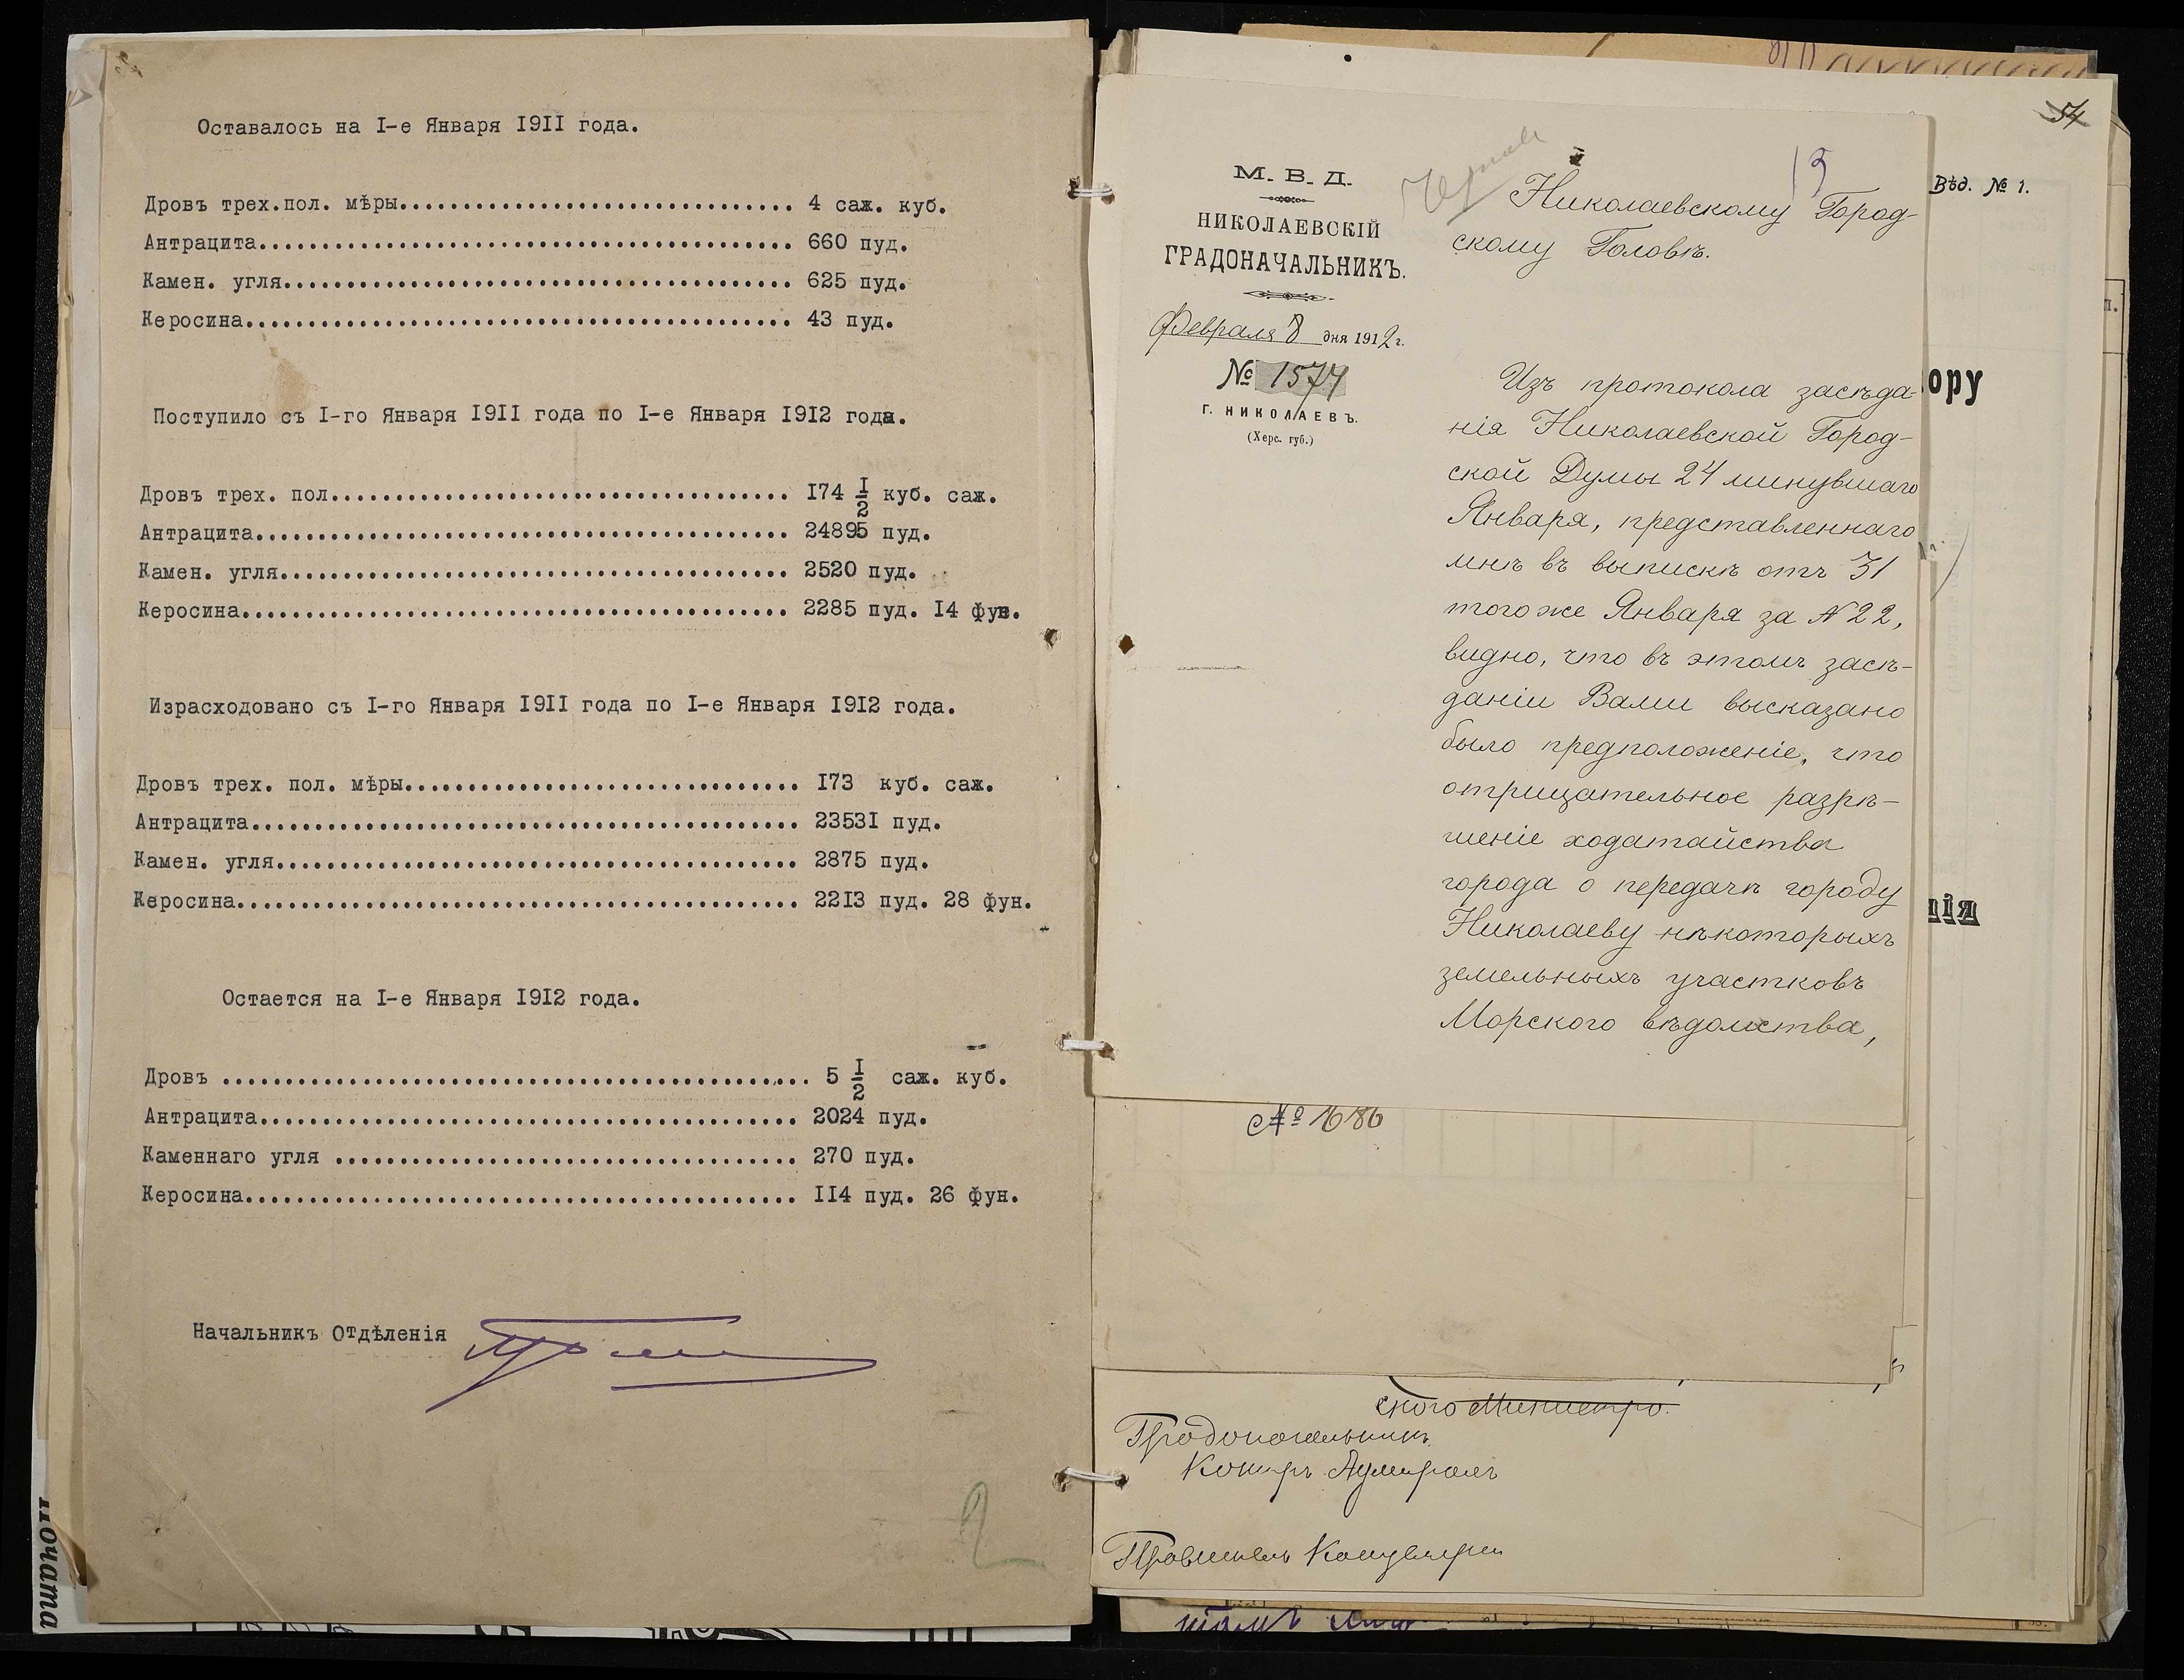 Оставалось на I-е Января I9II года.
Дровъ трех.пол. мѣры................................ 4 саж. куб.
Антрацита........................................... 660 пуд.
Камен. угля......................................... 625 пуд.
Керосина............................................ 43 пуд.
Поступило съ I-го Января I9II года по I-е Января I9I2 года.
Дровъ трех. пол..................................... I74 I/2 куб. саж.
Антрацита........................................... 24895 пуд.
Камен. угля......................................... 2520 пуд.
Керосина............................................ 2285 пуд. I4 фун.
Израсходовано съ I-го Января I9II года по I-е Января I9I2 года.
Дровъ трех. пол. мѣры................................ I73 куб. саж.
Антрацита............................................ 2353I пуд.
Камен. угля.......................................... 2875 пуд.
Керосина............................................. 22I3 пуд. 28 фун.
Остается на I-е Января I9I2 года.
Дровъ ............................................... 5 I/2 саж. куб.
Антрацита........................................... 2024 пуд.
Каменнаго угля ..................................... 270 пуд.
Керосина............................................ II4 пуд. 26 фун.
Начальникъ Отдѣленія
2
54
13
Вѣд. № 1.
М. В. Д.
НИКОЛАЕВСКІЙ
ГРАДОНАЧАЛЬНИКЪ.
Февраля 8 дня 1912 г.
№ 1574
Г. НИКОЛАЕВЪ.
(Херс. губ.)
Николаевскому Город-
скому Головѣ.
Изъ протокола засѣда-
нія Николаевской Город-
ской Думы 24 минувшаго
Января, представленнаго
мнѣ въ выпискѣ отъ 31
того же Января за № 22,
видно, что въ этомъ засѣ-
даніи Вами высказано
было предположеніе, что
отрицательное разрѣ-
шеніе ходатайства
города о передачѣ городу
Николаеву нѣкоторыхъ
земельныхъ участковъ
Морского вѣдомства,
ору
нія
№ 1686
ского Министро.
Градоначальникъ
Контръ Адмиралъ
Правитель Канцеляріи